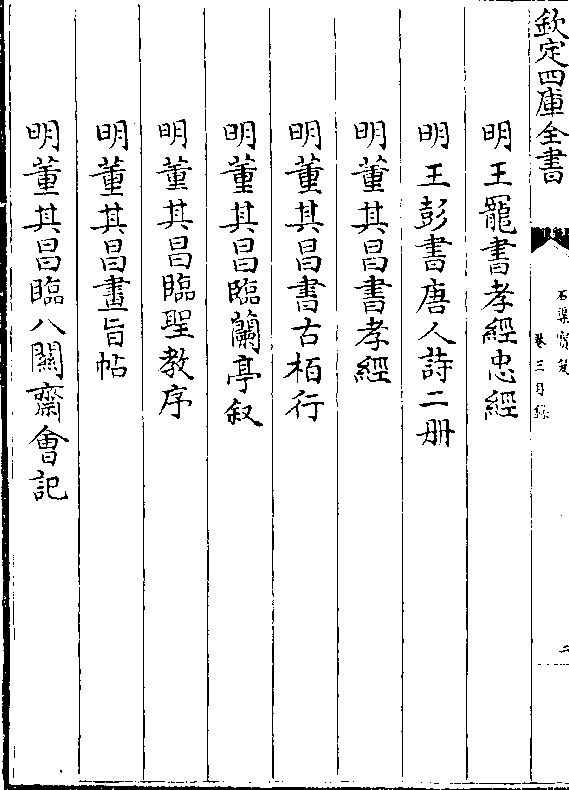 欽定四庫全書
石渠寶笈
卷三目錄
二
明王寵書孝經忠經
明王彭書唐人詩二册
明董其昌書孝經
明董其昌書古栢行
明董其昌臨蘭亭叙
明董其昌臨聖教序
明董其昌畫旨帖
明董其昌臨八關齋會記